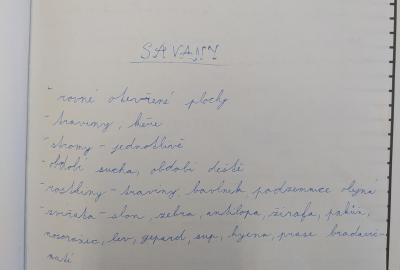 SAVANY
- rovné otevřené plochy
- traviny, keře
- stromy - jednotlivě
- období sucha, období deště
- rostliny - traviny, bavlník, podzemnice olejná
- zvířata - slon, zebra, antilopa, žirafa, pakůň,
nosorožec, lev, gepard, sup, hyena, prase bradavič-
naté